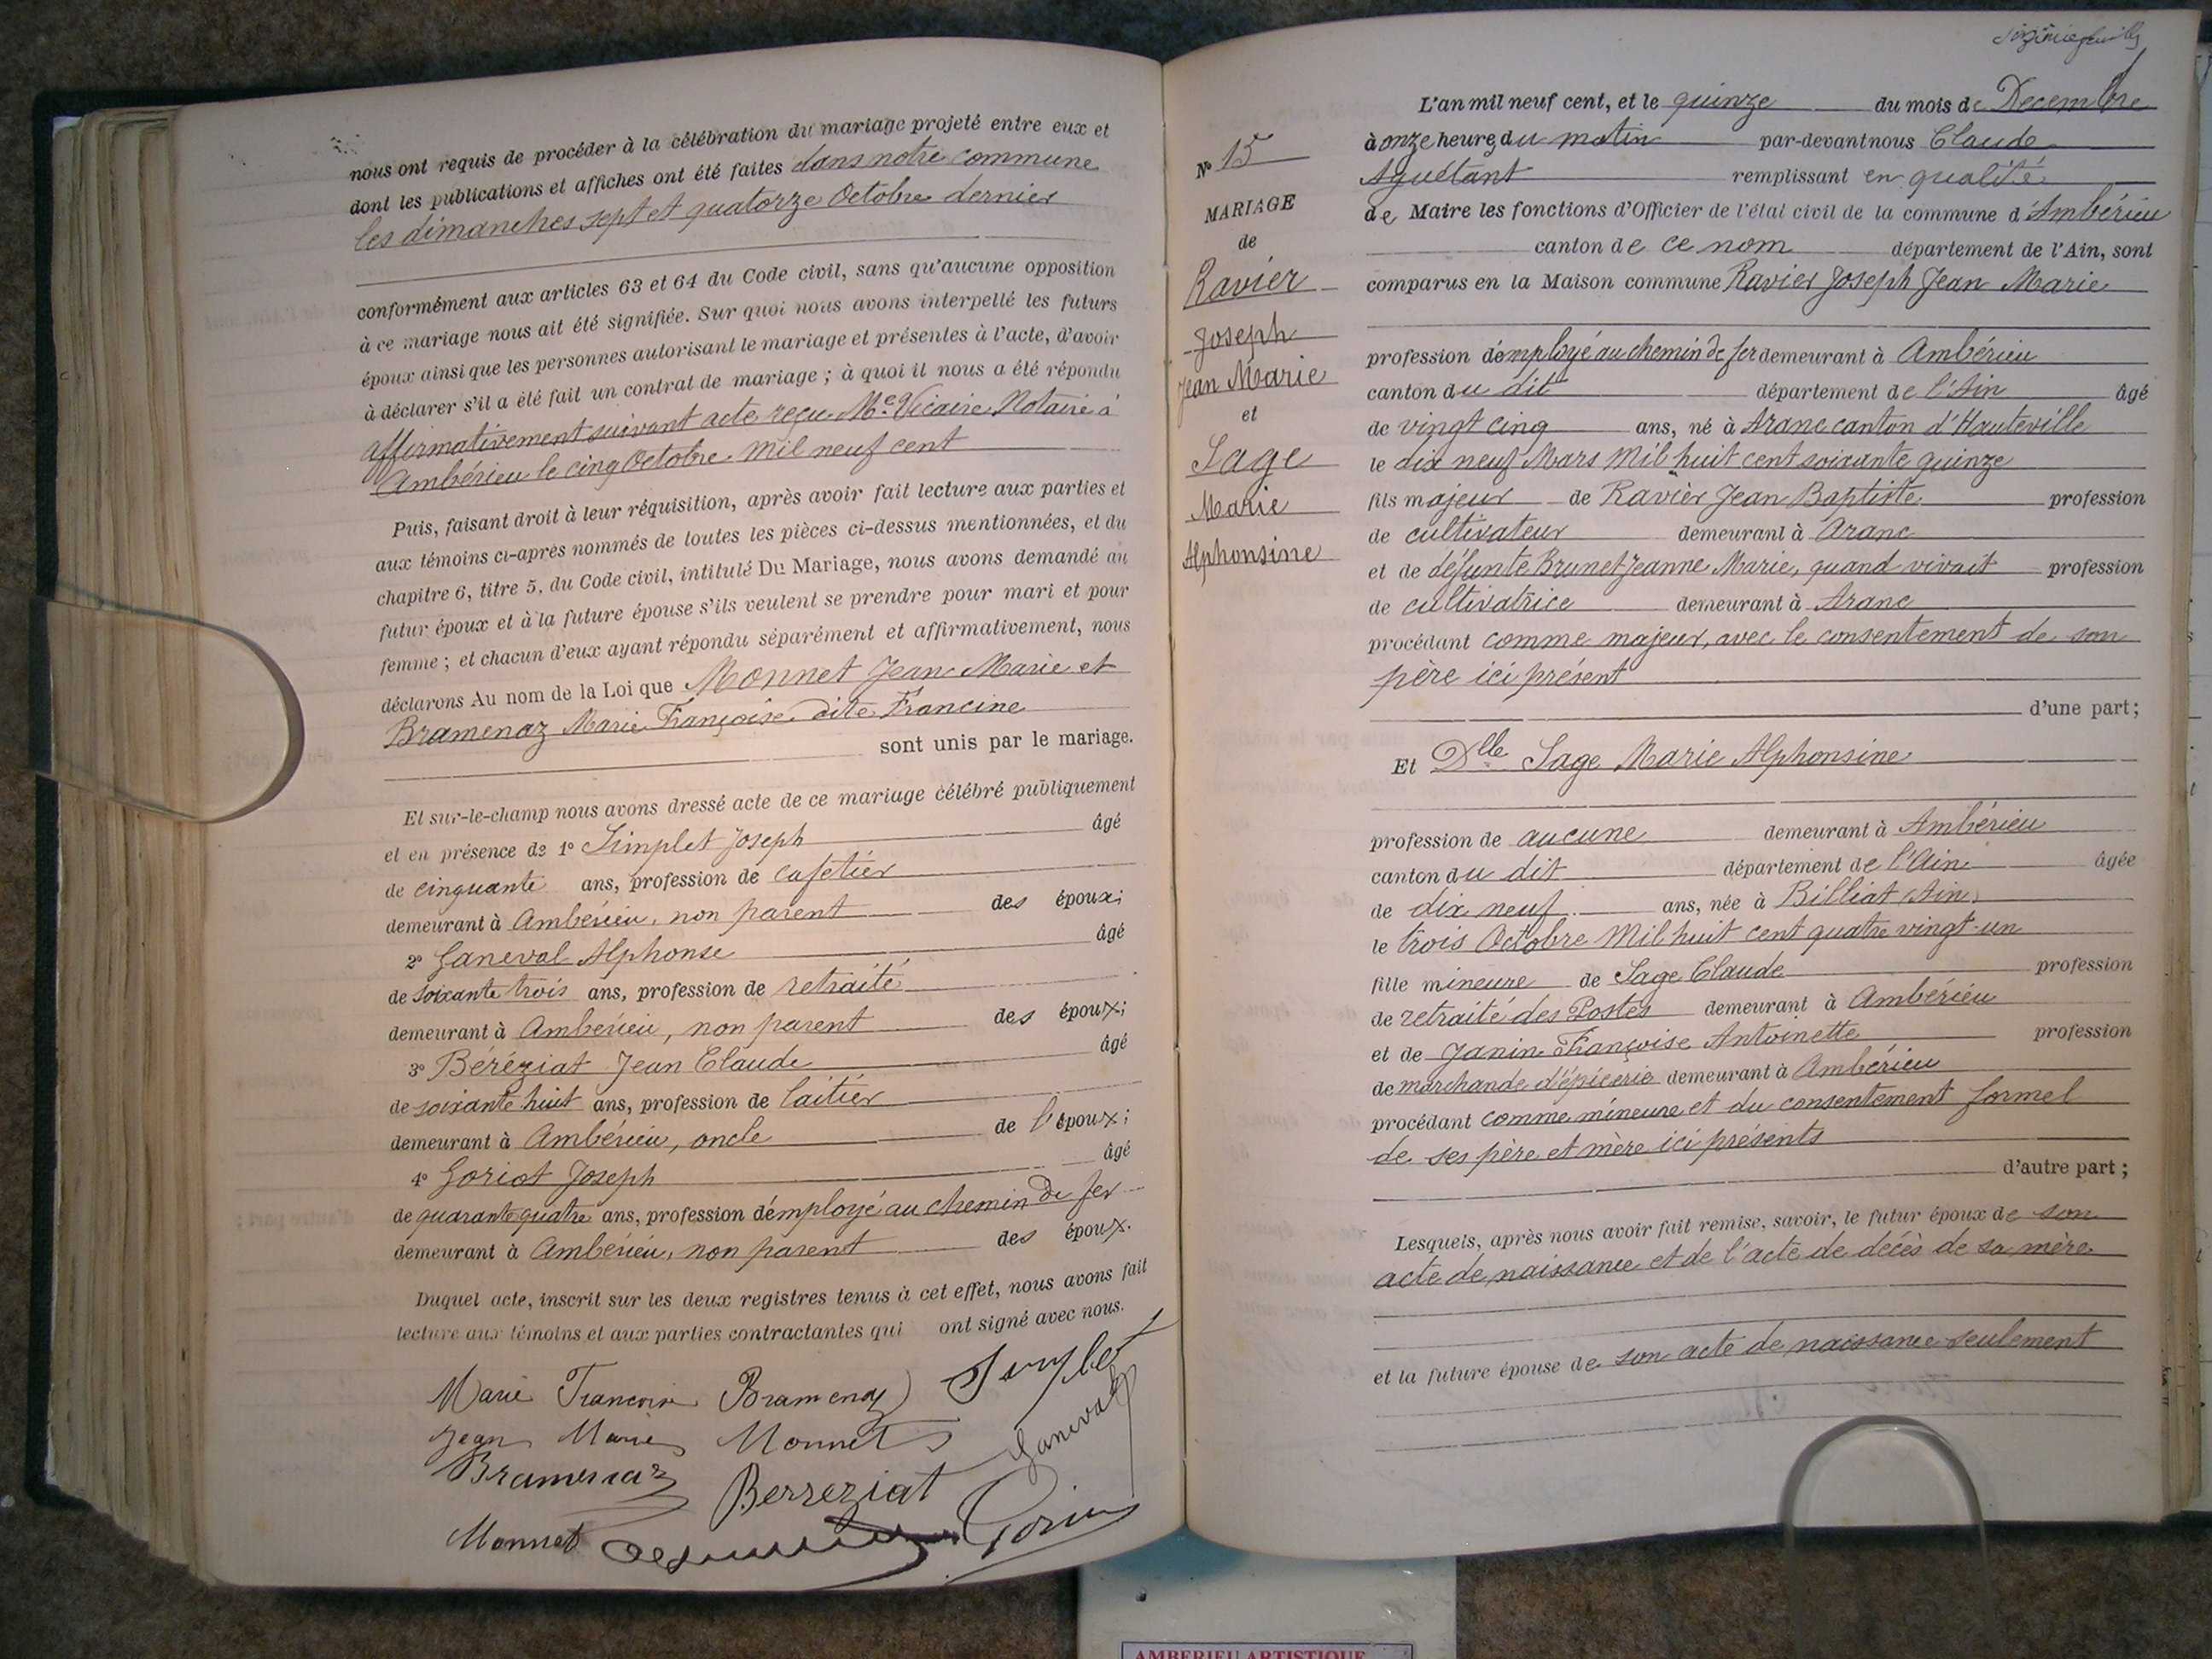 nous ont requis de procéder à la célébration du mariage projeté entre eux et
dont les publications et affiches ont été faites dans notre commune
les dimanches sept et quatorze Octobre dernier
conformément aux articles 63 et 64 du Code civil, sans qu'aucune opposition
à ce mariage nous ait été signifiée. Sur quoi nous avons interpellé les futurs
époux ainsi que les personnes autorisant le mariage et présentes à l'acte, d'avoir
à déclarer s'il a été fait un contrat de mariage ; à quoi il nous a été répondu
affirmativement suivant acte reçu Me Vicaire Notaire à
Ambérieu le cinq Octobre Mil neuf cent
Puis, faisant droit à leur réquisition, après avoir fait lecture aux parties et
aux témoins ci-après nommés de toutes les pièces ci-dessus mentionnées, et du
chapitre 6, titre 5, du Code civil, intitulé Du Mariage, nous avons demandé au
futur époux et à la future épouse s'ils veulent se prendre pour mari et pour
femme ; et chacun d'eux ayant répondu séparément et affirmativement, nous
déclarons Au nom de la Loi que Monnet Jean Marie et
Bramenaz Marie Françoise dite Francine
sont unis par le mariage.
Et sur-le-champ nous avons dressé acte de ce mariage célébré publiquement
et en présence de 1° Simplet Joseph âgé
de cinquante ans, profession de cafetier
demeurant à Ambérieu, non parent des époux;
2° Ganeval Alphonse âgé
de soixante trois ans, profession de retraité
demeurant à Ambérieu, non parent des époux;
3° Béréziat Jean Claude âgé
de soixante huit ans, profession de laitier
demeurant à Ambérieu, oncle de l'époux;
4° Goriot Joseph âgé
de quarante quatre ans, profession d'employé au chemin de fer
demeurant à Ambérieu, non parent des époux.
Duquel acte, inscrit sur les deux registres tenus à cet effet, nous avons fait
lecture aux témoins et aux parties contractantes qui ont signé avec nous.
Marie Bramenaz Simplet
Jean Marie Monnet Ganeval
Bramenaz Berreziat
Monnet
N° 15
MARIAGE
de
Ravier
Joseph
Jean Marie
et
Sage
Marie
Alphonsine
L'an mil neuf cent, et le quinze du mois de Decembre
à onze heures du matin par-devant nous Claude
Aguétant remplissant en qualité
de Maire les fonctions d'Officier de l'état civil de la commune d'Ambérieu
canton de ce nom département de l'Ain, sont
comparus en la Maison commune Ravier Joseph Jean Marie
profession d'employé au chemin de fer demeurant à Ambérieu
canton du dit département de l'Ain âgé
de vingt cinq ans, né à Aranc canton d'Hauteville
le dix neuf Mars Mil huit cent soixante quinze
fils majeur de Ravier Jean Baptiste profession
de cultivateur demeurant à Aranc
et de défunte Brunet Jeanne Marie, quand vivait profession
de cultivatrice demeurant à Aranc
procédant comme majeur, avec le consentement de son
père ici présent
d'une part;
Et Dlle Sage Marie Alphonsine
profession de aucune demeurant à Ambérieu
canton du dit département de l'Ain âgée
de dix neuf ans, née à Billiat (Ain)
le trois Octobre Mil huit cent quatre vingt-un
fille mineure de Sage Claude profession
de retraité des Postes demeurant à Ambérieu
et de Janin Françoise Antoinette profession
de marchande d'épicerie demeurant à Ambérieu
procédant comme mineure et du consentement formel
de ses père et mère ici présents
d'autre part ;
Lesquels, après nous avoir fait remise, savoir, le futur époux de son
acte de naissance et de l'acte de décès de sa mère
et la future épouse de son acte de naissance seulement
AMBERIEU ARTISTIQUE